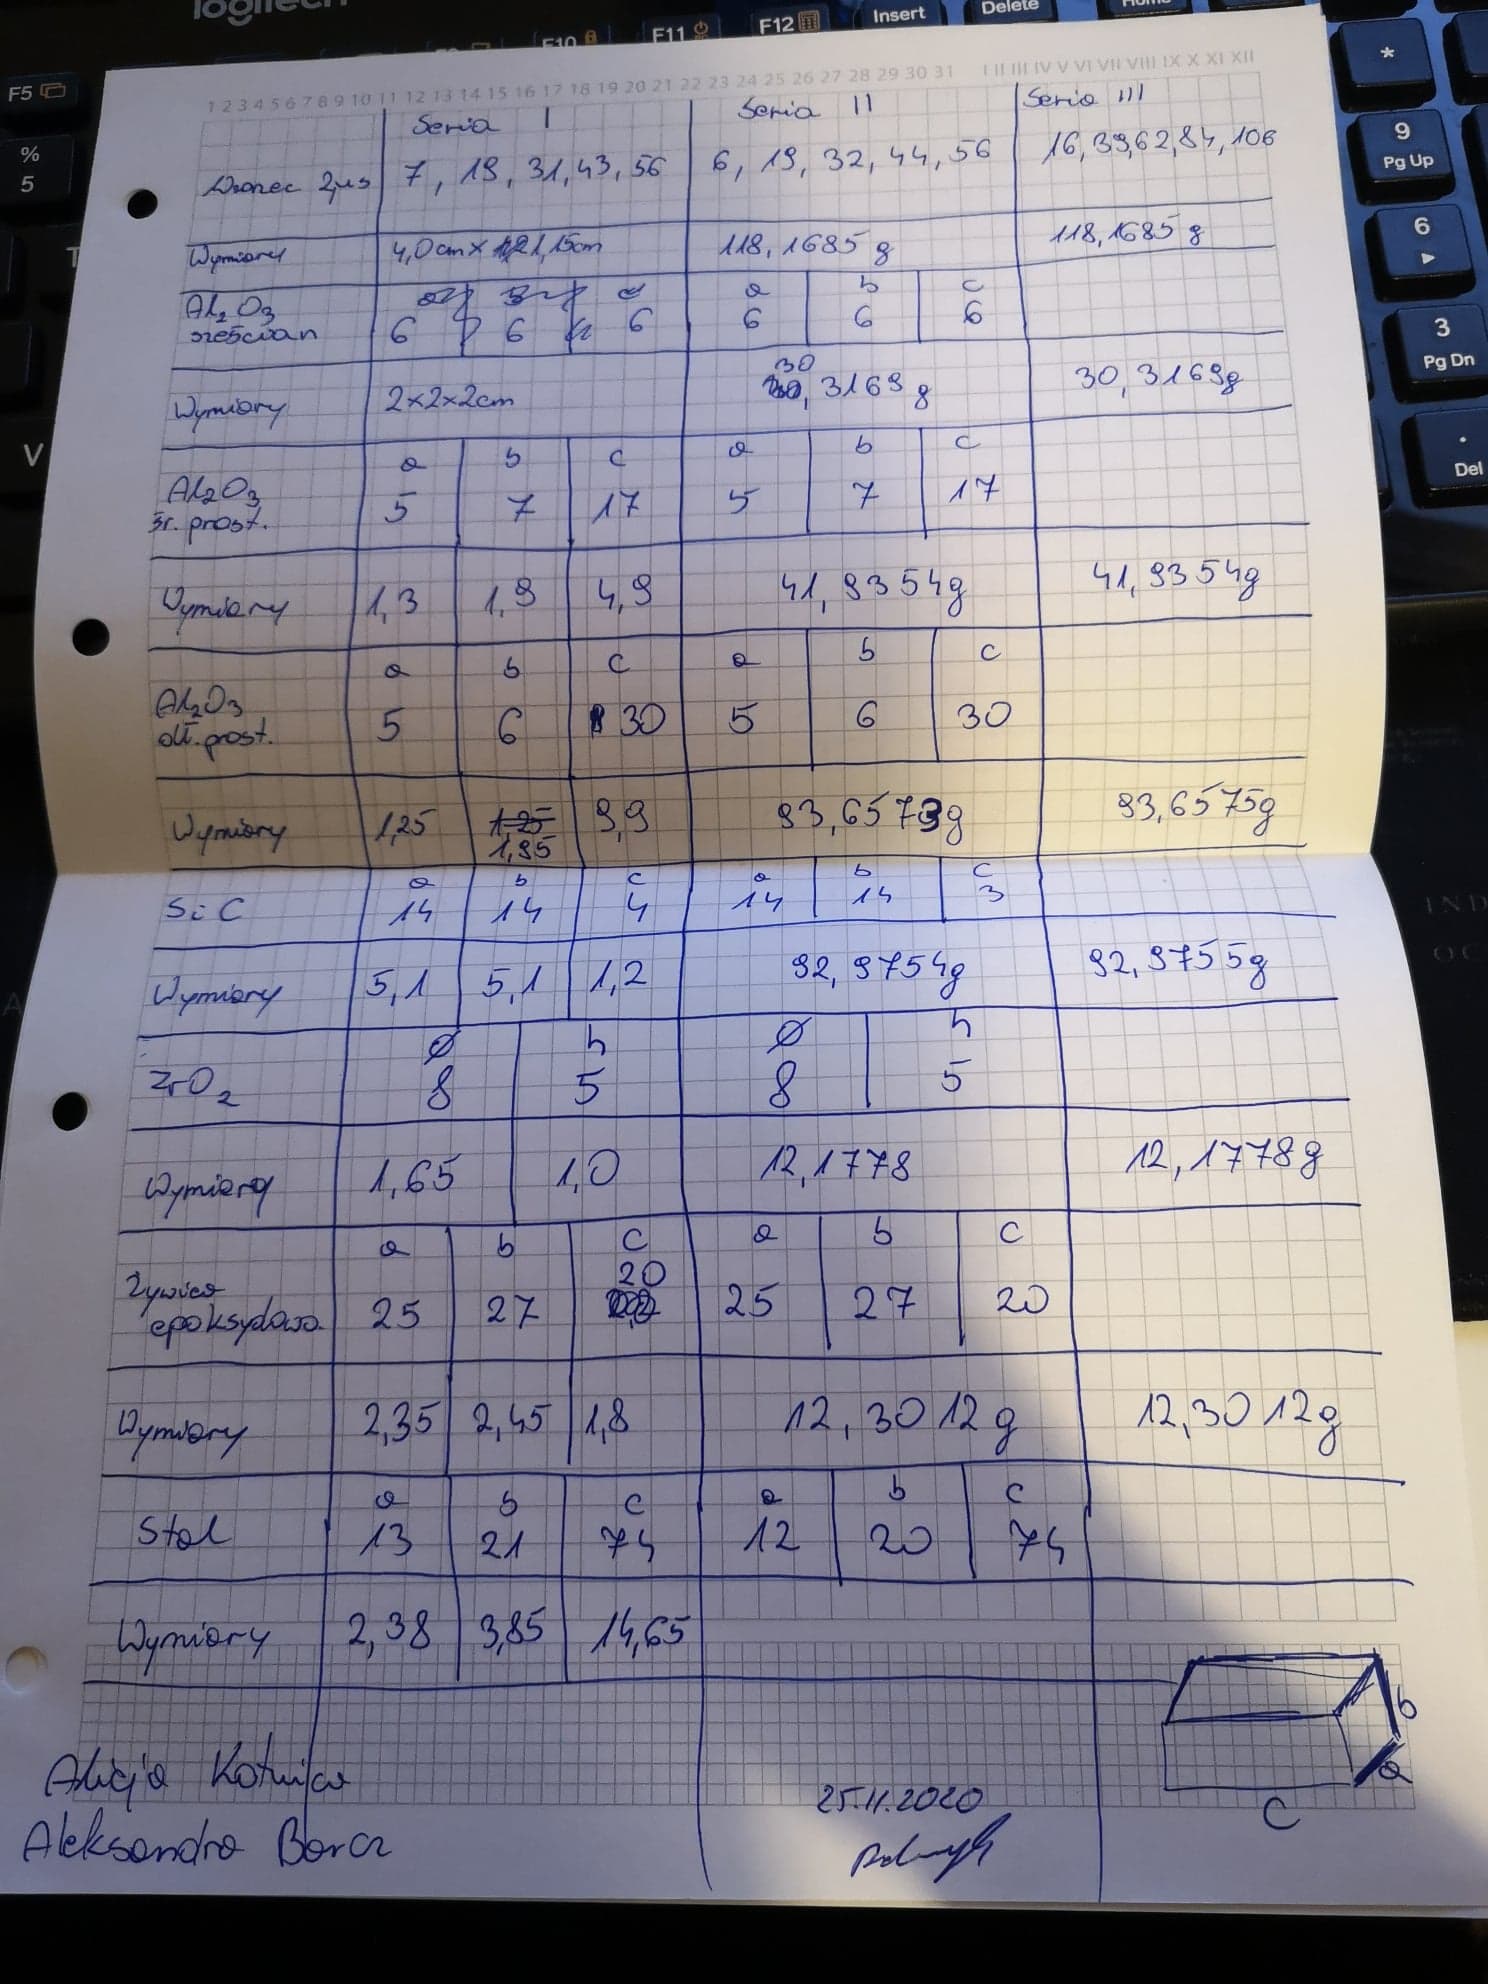 logitech
F5
F10
F11
F12
Insert
Delete
Home
%
5
V
*
9
Pg Up
6
3
Pg Dn
.
Del
1 2 3 4 5 6 7 8 9 10 11 12 13 14 15 16 17 18 19 20 21 22 23 24 25 26 27 28 29 30 31 I II III IV V VI VII VIII IX X XI XII
Seria I Seria II Seria III
2μs 7, 19, 31, 43, 56 6, 19, 32, 44, 56 16, 39, 62, 84, 106
Wymiary 4,0cm x 1,15cm 118,1685 g 118,1685 g
Al2O3 a b c
sześcian 6 6 6 6 6 6
Wymiary 2x2x2cm 30,3169 g 30,3169g
a b c a b c
Al2O3
śr. prost. 5 7 17 5 7 17
Wymiary 1,3 1,9 4,9 41,9354g 41,9354g
a b c a b c
Al2O3
dł. prost. 5 6 30 5 6 30
Wymiary 1,25 1,95 9,9 93,6573g 93,6575g
a b c a b c
SiC 14 14 4 14 14 3
Wymiary 5,1 5,1 1,2 92,9754g 92,9755g
ø h ø h
ZrO2 8 5 8 5
Wymiary 1,65 1,0 12,1778 12,1778g
a b c a b c
Żywica
epoksydowa 25 27 20 25 27 20
Wymiary 2,35 2,45 1,8 12,3012 g 12,3012g
a b c a b c
Stal 13 21 74 12 20 74
Wymiary 2,38 3,85 14,65
b
a
c
Alicja Kotnica
Aleksandra Barcz
25.11.2020